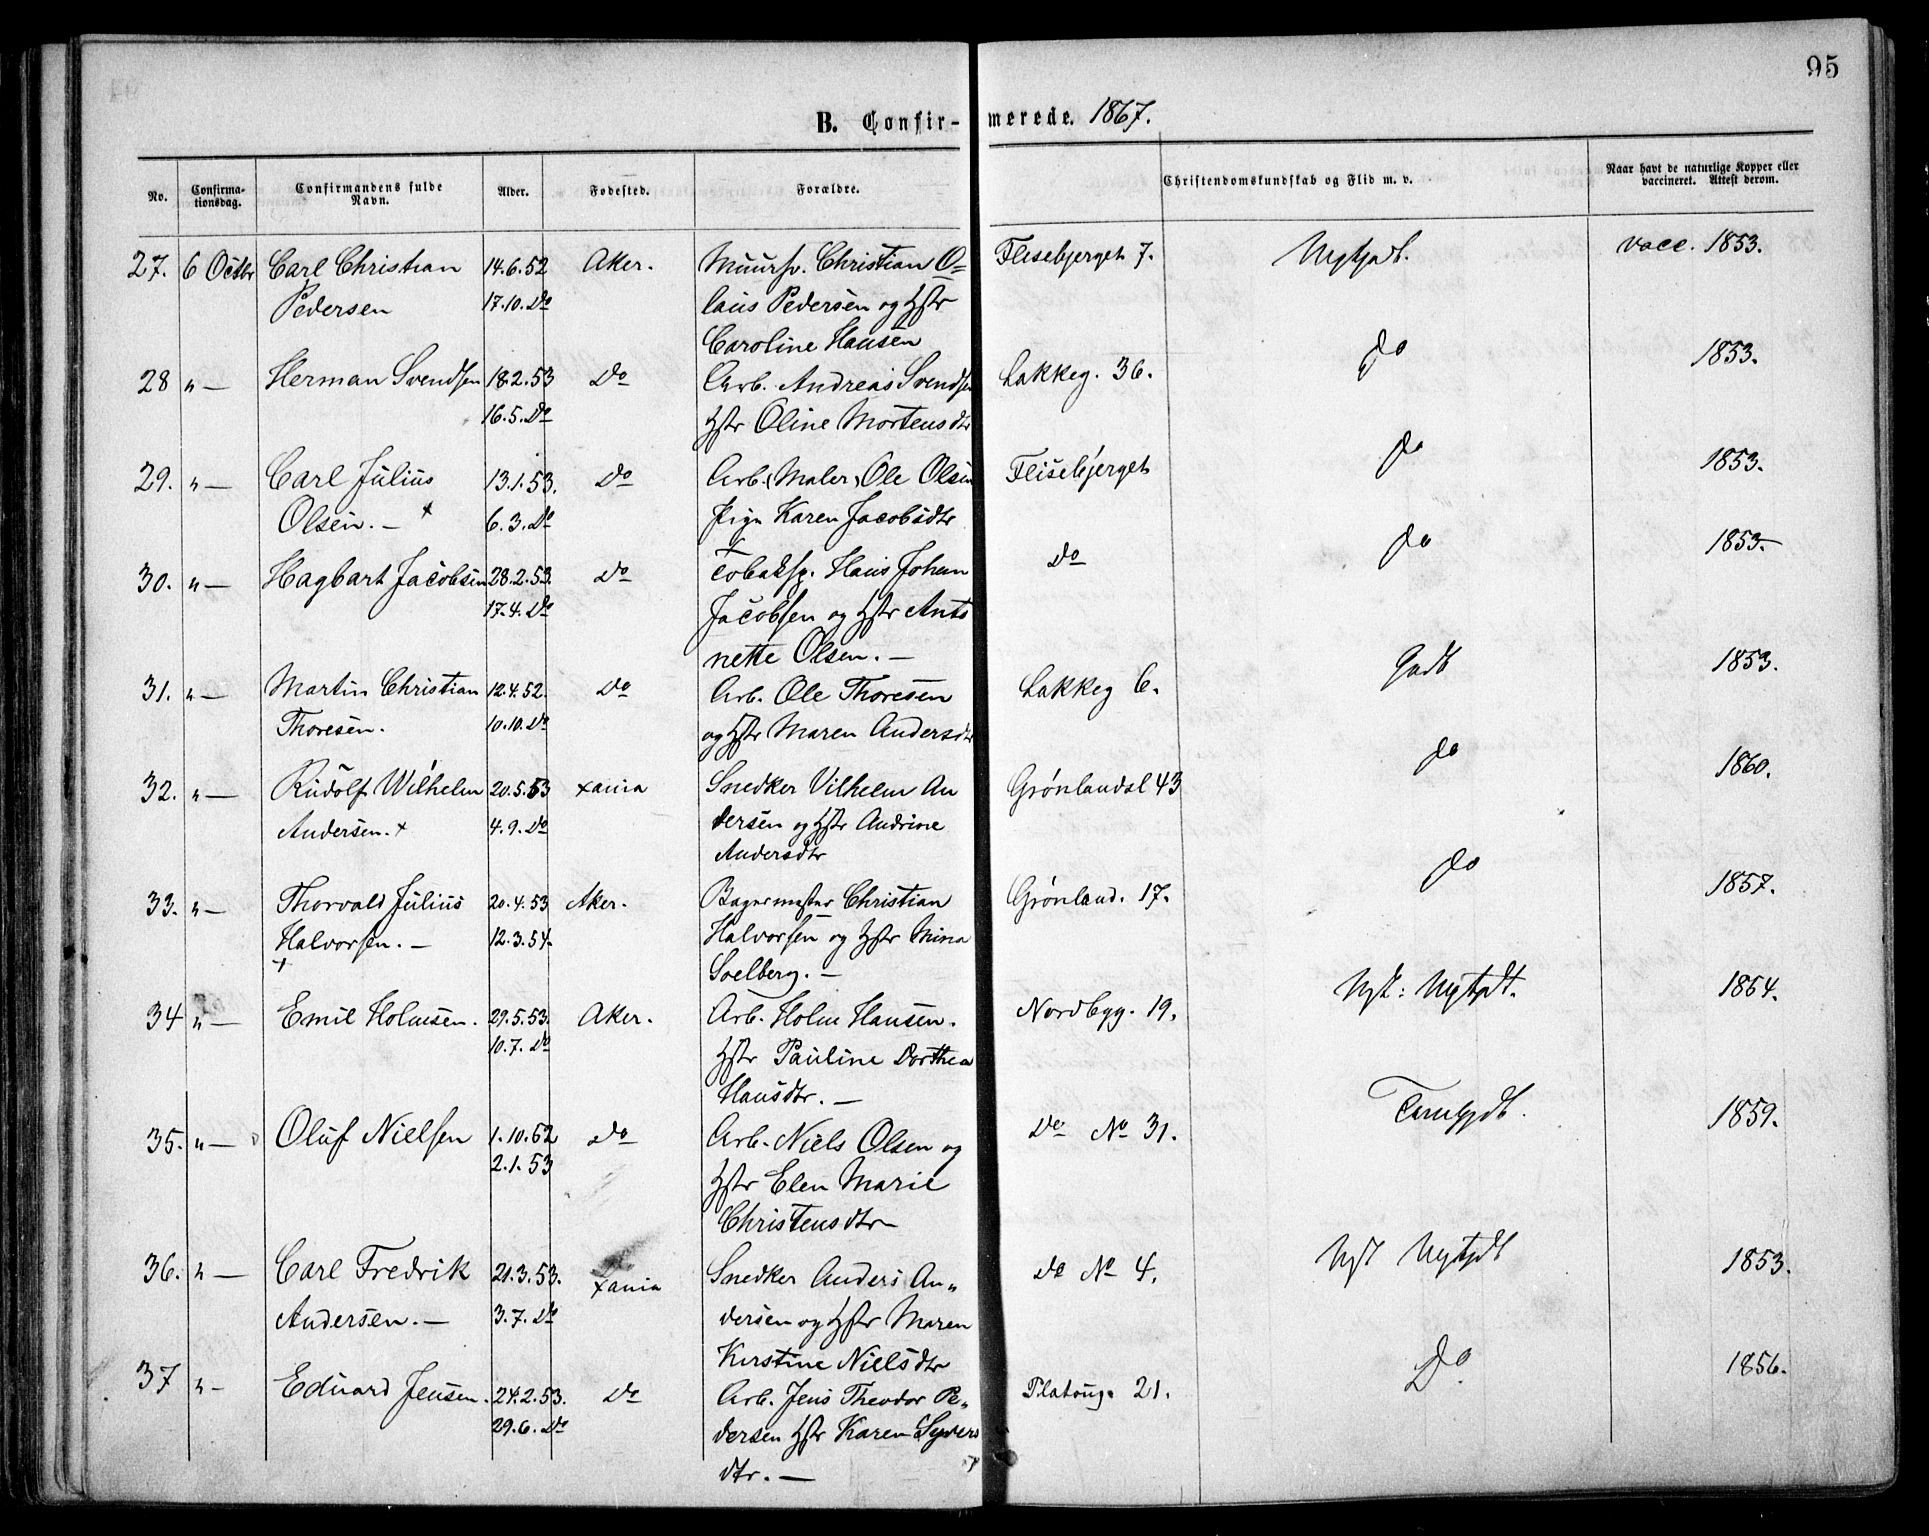 95
B. Confir- merede. 1867.
No. Confirma-tionsdag. Confirmandens fulde Navn. Alder. Fødested. Forældre. Christendomskundskab og Flid m. v. Naar havt de naturlige Kopper eller vaccineret. Attest derom.
27. 6 Octbr Carl Christian 14.6.52 Aker. Muursv. Christian O= Flisebjerget 7. Mgtgdt. vacc. 1853.
Pedersen 17.10. Do laus Pedersen og Hstr
Caroline Hansen
28 " — Herman Svendsen 18.2.53 Do Arb. Andreas Svendsen Lakkeg. 36. do 1853.
16.5. Do Hstr Oline Mortensdtr
29. " — Carl Julius 13.1.53. Do Arb. (Maler) Ole Olsen Flisebjerget do 1853.
Olsen. — + 6.3. Do Pige Karen Jacobsdtr
30. " — Hagbart Jacobsen 28.2.53. Do Tobaksp. Hans Johan Do do 1853.
17.4. Do Jacobsen og Hstr Anto
nette Olsen. —
31. " — Martin Christian 12.4.52. Do Arb. Ole Thoresen Lakkeg 6. Godt 1853.
Thoresen. 10.10. Do og Hstr Maren Andersdtr
32. " — Rudolf Wilhelm 20.5.53 Xania Snedker Vilhelm An Grønlandsl 43 do 1860.
Andersen. + 4.9. Do dersen og Hstr Andrine
Andersdtr
33. " — Thorvald Julius 20.4.53 Aker. Bagermester Christian Grønland. 17. do 1857.
Halvorsen. — 12.3.54. Halvorsen og Hstr Mina
+ Soelberg. —
34 " — Emil Holmsen. 29.5.53. Aker. Arb. Holm Hansen. Nordbyg. 19. Ngt: Mgtgdt. 1864.
10.7. Do Hstr Pauline Dorthea
Hansdtr. —
35. " — Oluf Nielsen 1.10.52 Do Arb. Niels Olsen og Do No 31. Temlgdt. 1859.
2.1.53 Hstr Elen Marie
Christensdtr
36. " — Carl Fredrik 21.3.53. Xania Snedker Anders An„ Do No 4. Ngt Mgtgdt 1853.
Andersen. — 3.7. Do dersen og Hstr Maren
Kirstine Nielsdtr
37 " - Eduard Jensen. 24.2.53. Do Arb. Jens Theodor Pe„ Platoug. 21. Do 1856.
29.6. Do dersen Hstr Karen Syvers
dtr. —